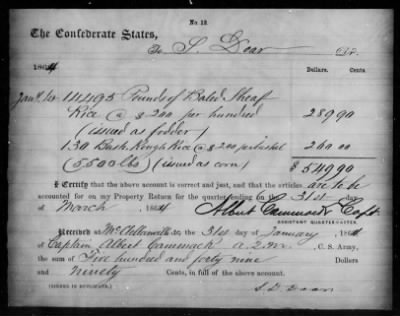 No 13
The Confederate States,
To S. Dear Dr.
1864 Dollars. Cents.
14495 Pounds of Baled Sheaf
Rice @ $2.00 per hundred 289 90
(issued as fodder)
130 Bush. Rough Rice @ $2.00 per bushel 260 00
(5500 lbs) (issued as corn)
$549 90
I Certify that the above account is correct and just, and that the articles are to be
accounted for on my Property Return for the quarter ending on the 31st day
of March, 1864 Albert Cammack Capt
ASSISTANT QUARTERMASTER.
Received at McClellanville the 31st of January, 1864
of Captain Albert Cammack a. q. m., C. S. Army,
the sum of Five hundred and forty nine Dollars
and ninety Cents, in full of the above account.
(SIGNED IN DUPLICATE.) S. D. Dear